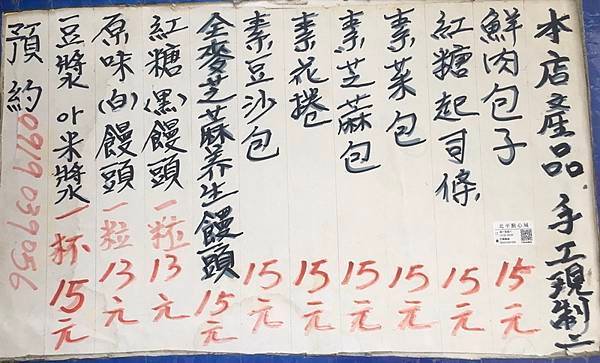 本店產品 手工現制
鮮肉包子 15元
紅糖起司條 15元
素菜包 15元
素芝麻包 15元
素花捲 15元
素豆沙包 15元
全麥芝蔴养生饅頭 15元
紅糖(黑)饅頭 一粒 13元
原味(白)饅頭 一粒 13元
豆漿 or 米漿 一杯 15元
預約 0919 039056